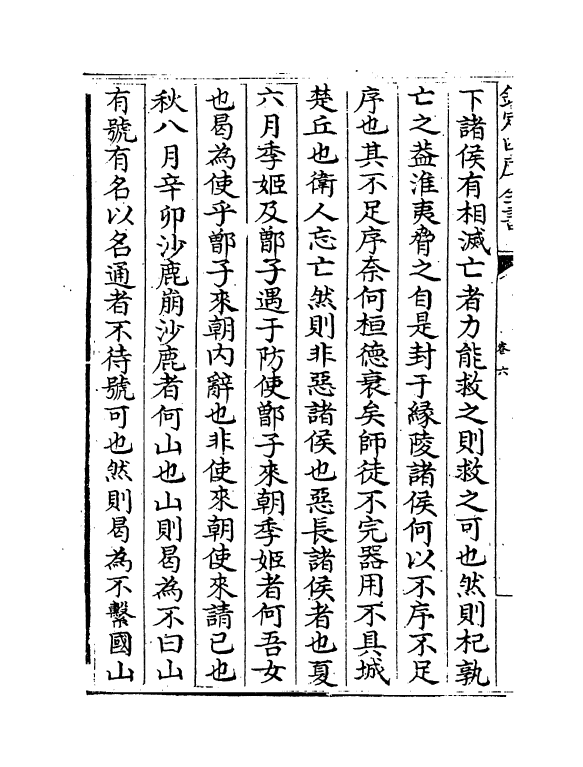 欽定四庫全書
卷六
下諸侯有相滅亡者力能救之則救之可也然則杞孰
亡之葢淮夷脅之自是封于緣陵諸侯何以不序不足
序也其不足序奈何桓德衰矣師徒不完器用不具城
楚丘也衛人忘亡然則非惡諸侯也惡長諸侯者也夏
六月季姬及鄫子遇于防使鄫子來朝季姬者何吾女
也曷為使乎鄫子來朝内辭也非使來朝使來請已也
秋八月辛卯沙鹿崩沙鹿者何山也山則曷為不曰山
有號有名以名通者不待號可也然則曷為不繫國山